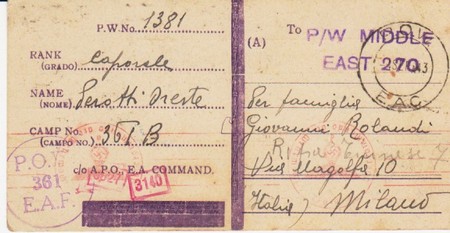 P.W No. 1381
RANK
(GRADO) Caporale
NAME
(NOME) Perotti Oreste
CAMP No.
(CAMPO NO.) 361 B
c/o A.P.O., E.A. COMMAND.
P.O.W.
361
E.A.F.
3140
(A)
To P/W MIDDLE
EAST 270
E.A.C.
Per famiglia
Giovanni Rolandi
Via Magolfa 10
Italia) Milano